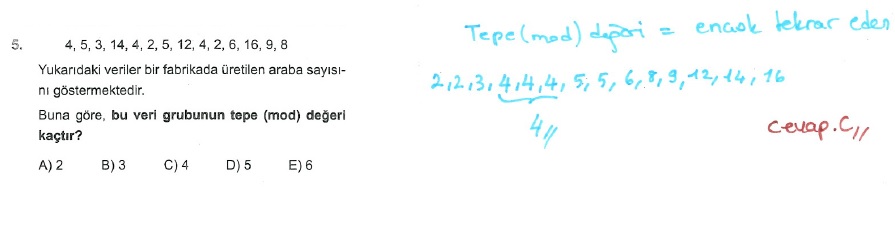 5. 4, 5, 3, 14, 4, 2, 5, 12, 4, 2, 6, 16, 9, 8
Yukarıdaki veriler bir fabrikada üretilen araba sayısı-
nı göstermektedir.
Buna göre, bu veri grubunun tepe (mod) değeri
kaçtır?
A) 2 B) 3 C) 4 D) 5 E) 6
Tepe (mod) değeri = en çok tekrar eden
2, 2, 3, 4, 4, 4, 5, 5, 6, 8, 9, 12, 14, 16
4//
cevap. C//